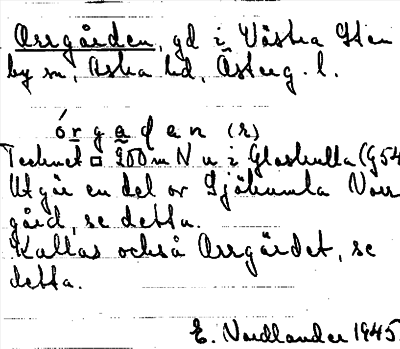 Orrgården, gd i Västra Sten
by sn, Aska hd, Österg. l.
órgaḍen (r)
Tecknet □ 200 m N u i Glashulta (G54
Utgör en del av Sjöhumla Norr
gård, se detta.
Kallas också Orrgärdet, se
detta.
E. Nordlander 1945.